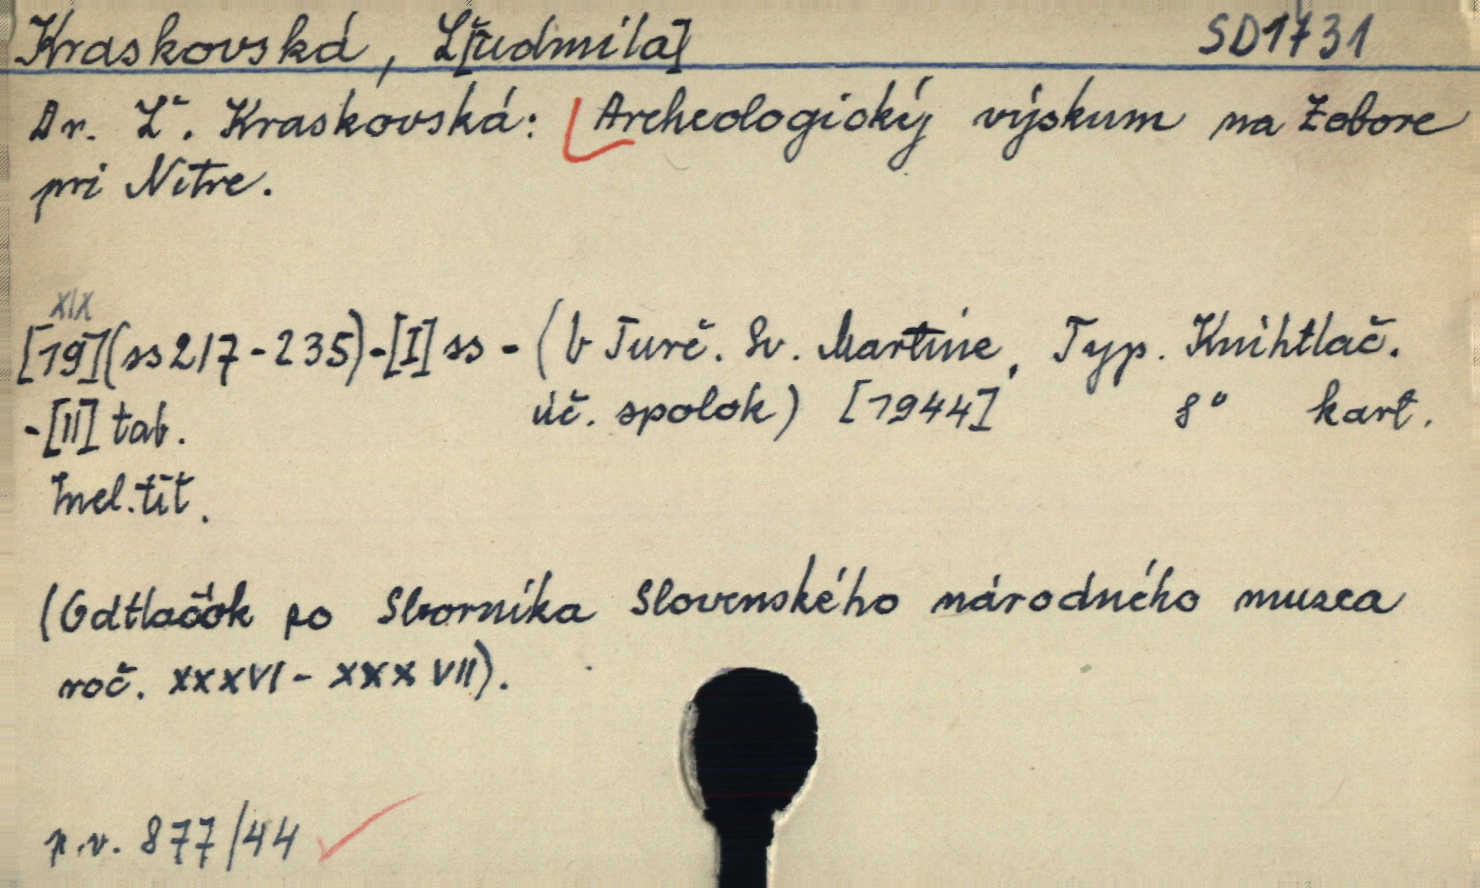 Kraskovská, Ľ[udmila] SD1731
Dr. Ľ. Kraskovská: Archeologický výskum na Zobore
pri Nitre.
XIX
[19](ss 217-235)-[I] ss - (V Turč. Sv. Martine, Typ. Knihtlač.
-[II] tab. úč. spolok) [1944] 8° kart.
tit.
(Odtlačok zo Sborníka Slovenského národného muzea
roč. XXXVI - XXXVII).
p.v. 877/44